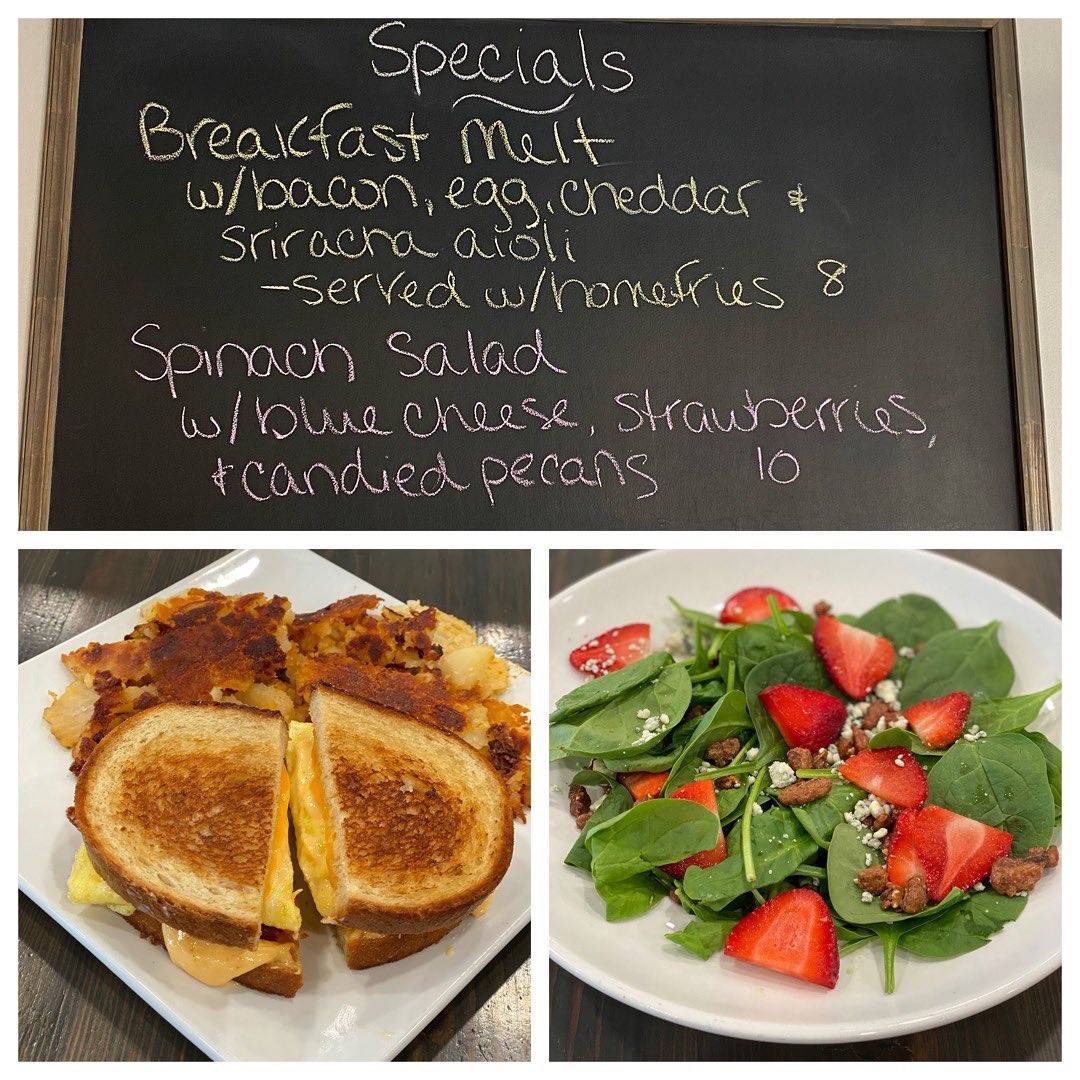 Specials
Breakfast Melt
w/bacon, egg, cheddar &
sriracha aioli
-served w/homefries 8
Spinach Salad
w/blue cheese, strawberries,
& candied pecans 10